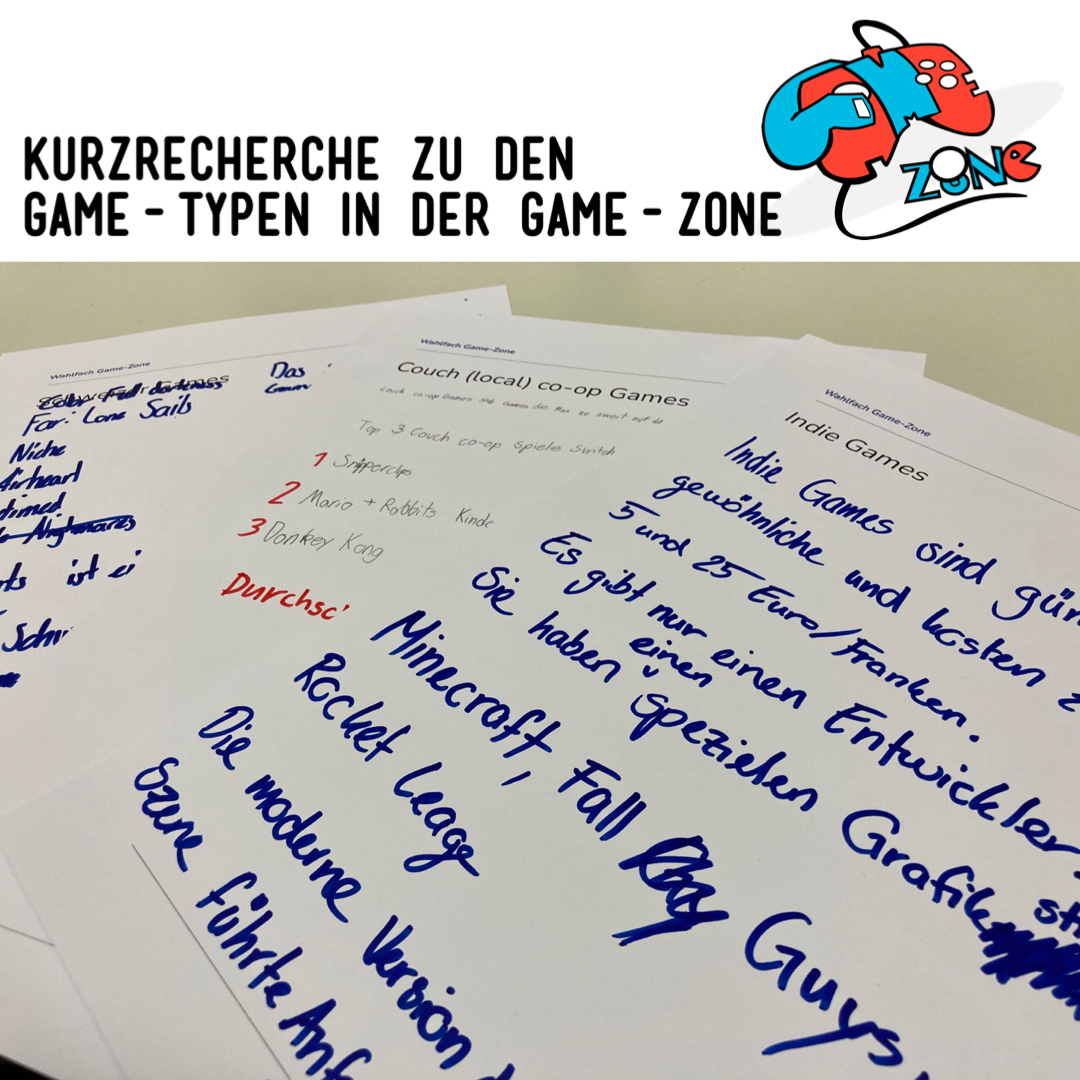 KURZRECHERCHE ZU DEN
GAME-TYPEN IN DER GAME-ZONE
ZONE
Wahlfach Game-Zone
Das
Far: Lone Sails
Niche
Airheart
ist ei
Wahlfach Game-Zone
Couch (local) co-op Games
Couch co-op Games sind Games die Man zu zweit auf
Top 3 Couch co-op Spiele Switch
1 Snipperclips
2 Mario + Rabbits Kinde
3 Donkey Kong
Durchsc
Wahlfach Game-Zone
Indie Games
Indie Games sind gün
gewöhnliche und kosten z
5 und 25 Euro/Franken.
Es gibt nur einen Entwickler
Sie haben einen Spezielen Grafik st
Minecraft, Fall Guys,
Rocket Leage
Die moderne Version d
Szene führte Anf